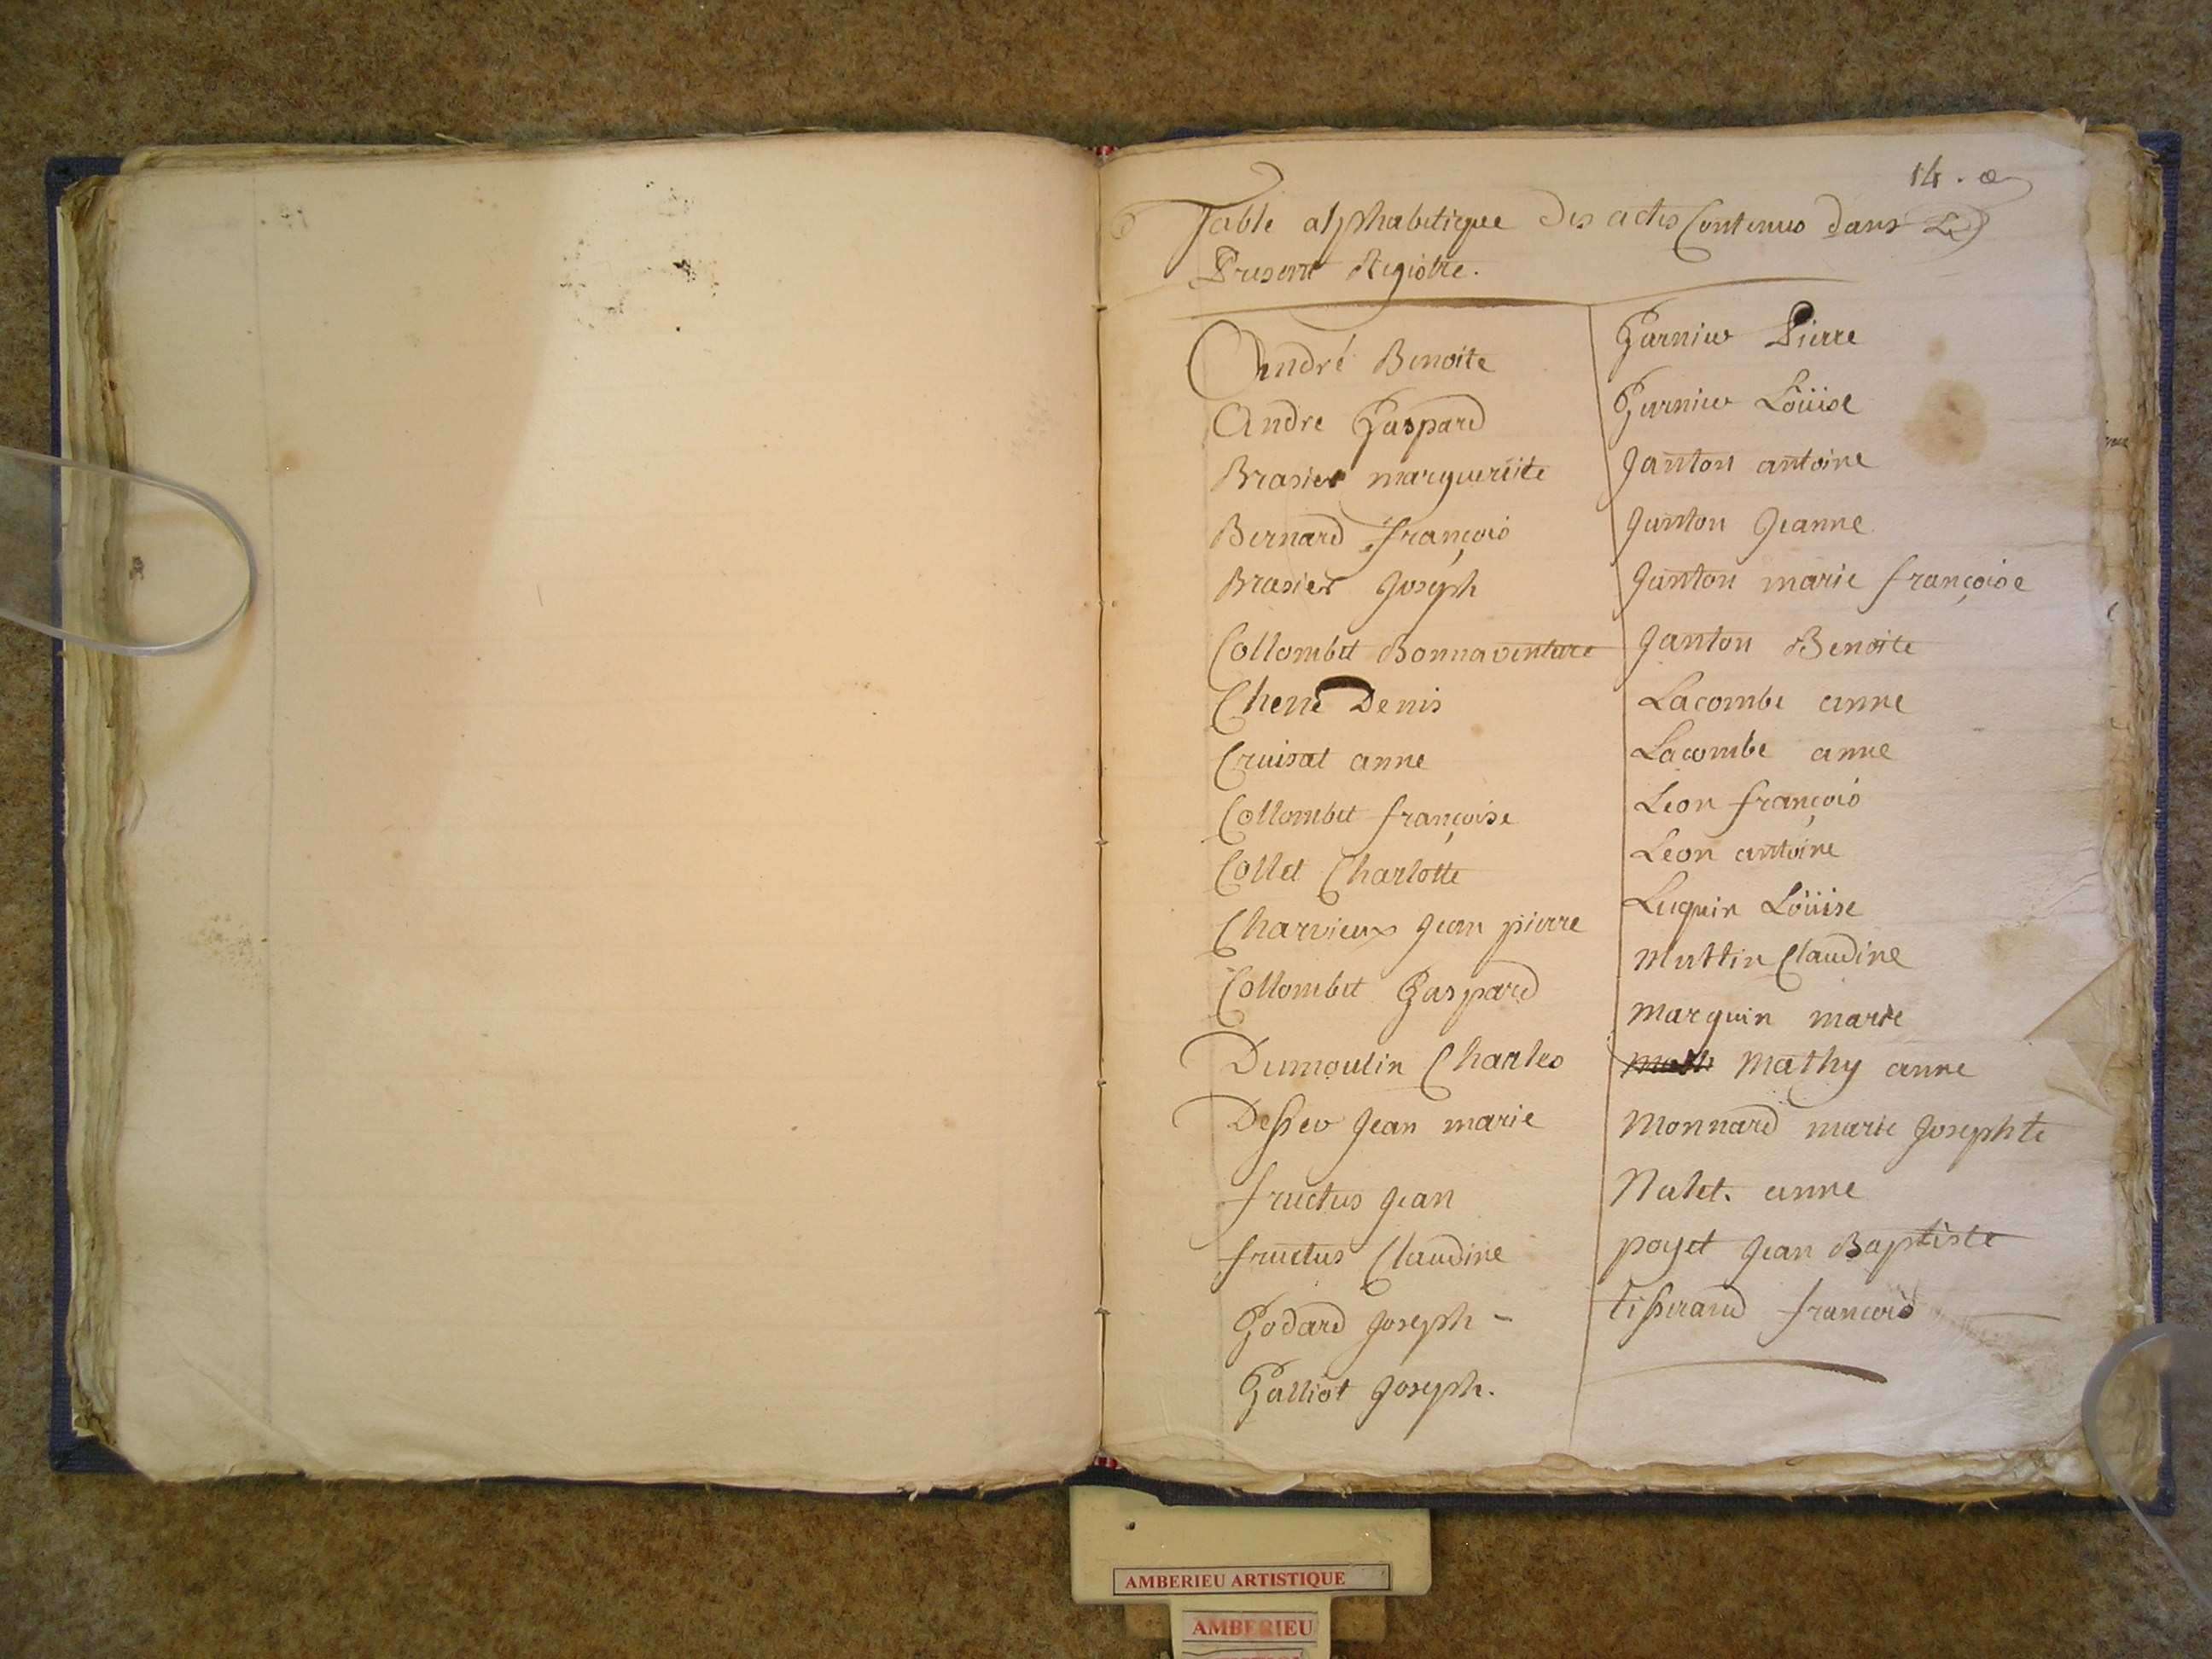 14.
Table alphabetique Des actes Contenus dans Le
Present Registre.
André Benoite
Andre Gaspard
Brasier marguerite
Bernard françois
Brasier Joseph
Collombet Bonnaventure
Chene Denis
Cruisat anne
Collombet françoise
Collet Charlotte
Charvieux Jean pierre
Collombet Gaspard
Dumoulin Charles
Jean marie
fructus Jean
fructus Claudine
Godard Joseph -
Galliot Joseph.
Garnier Pierre
Garnier Loüise
Janton antoine
Janton Jeanne
Janton marie françoise
Janton Benoite
Lacombe anne
Lacombe anne
Leon françois
Leon antoine
Luquin Loüise
Muttin Claudine
Marquin marie
Mathy anne
Monnard marie Josephte
Nalet. anne
poyet Jean Baptiste
tisserand francois
AMBERIEU ARTISTIQUE
AMBERIEU